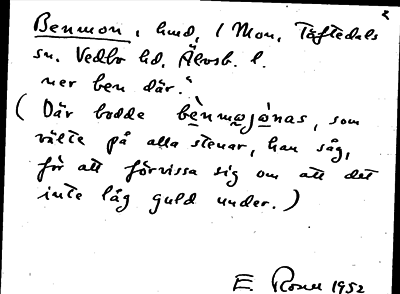 Benmon, hmd, (Mon, Töftedals
sn. Vedbo hd, Älvsb. l.
ner ben där."
(Där bodde bènmo̱jo̱nas, som
välte på alla stenar, han såg,
för att förvissa sig om att det
inte låg guld under.)
E. Rosell 1952